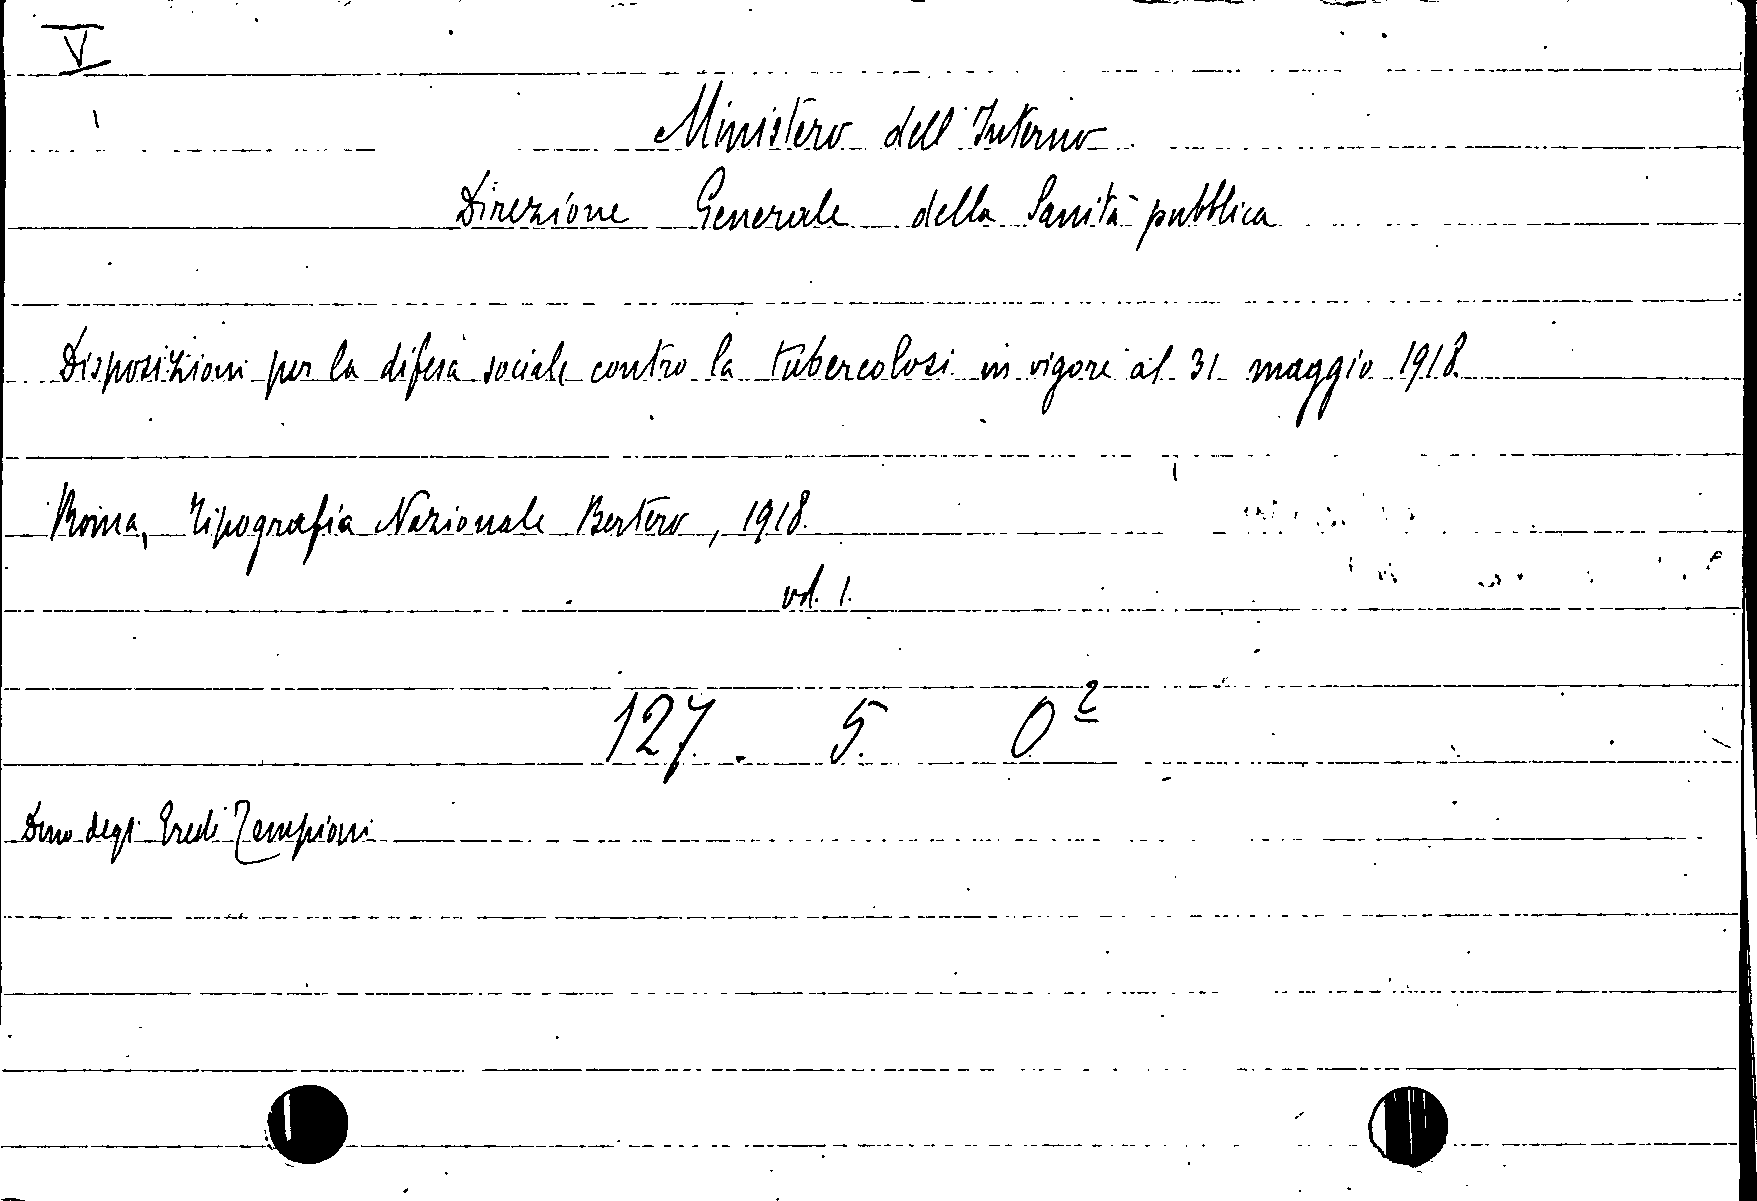 V
Ministero dell'Interno
Direzione Generale della Sanità pubblica
Disposizioni per la difesa sociale contro la tubercolosi in vigore al 31 maggio 1918.
Roma, Tipografia Nazionale Bertero, 1918.
vol. 1.
127. 5. O²
Dono degli Eredi Zampioni